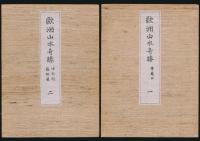 歐洲山水奇勝
一
歐洲山水奇勝
二